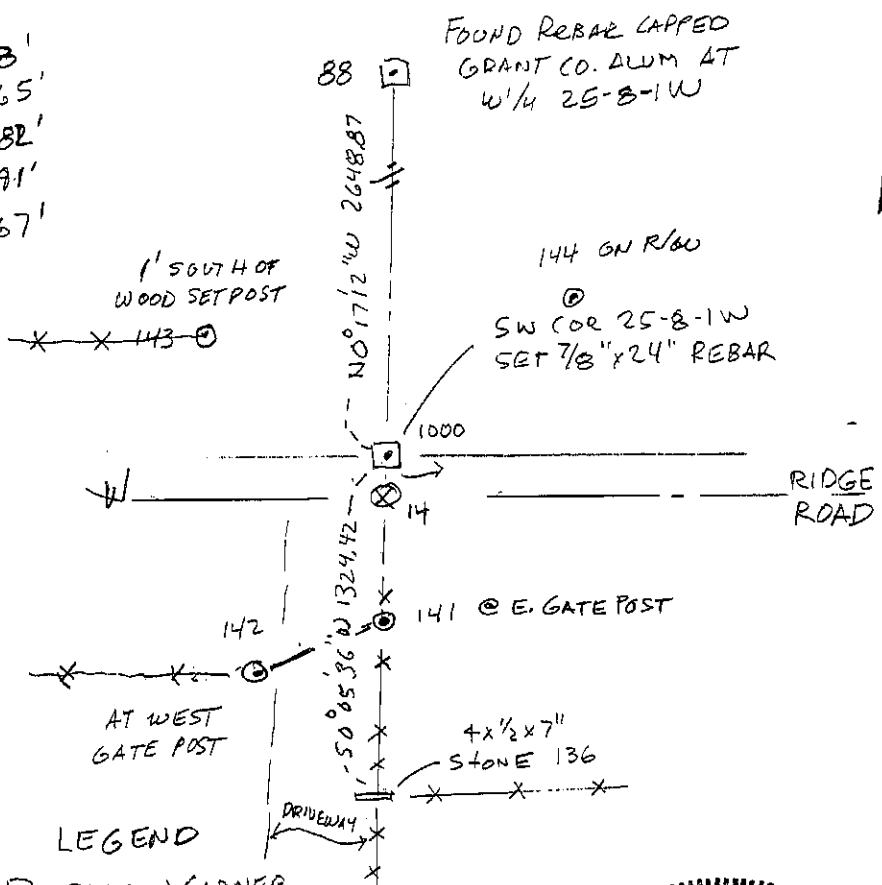 FOUND REBAR CAPPED
GRANT CO. ALUM AT
W1/4 25-8-1W
88
N0°17'12"W 2648.87
1' SOUTH OF
WOOD SET POST
143
144 ON R/W
SW COR 25-8-1W
SET 7/8"x24" REBAR
1000
W
14
RIDGE
ROAD
S0°05'36"W 1324.42
141 @ E. GATE POST
142
AT WEST
GATE POST
4x1/2x7"
STONE 136
DRIVEWAY
LEGEND